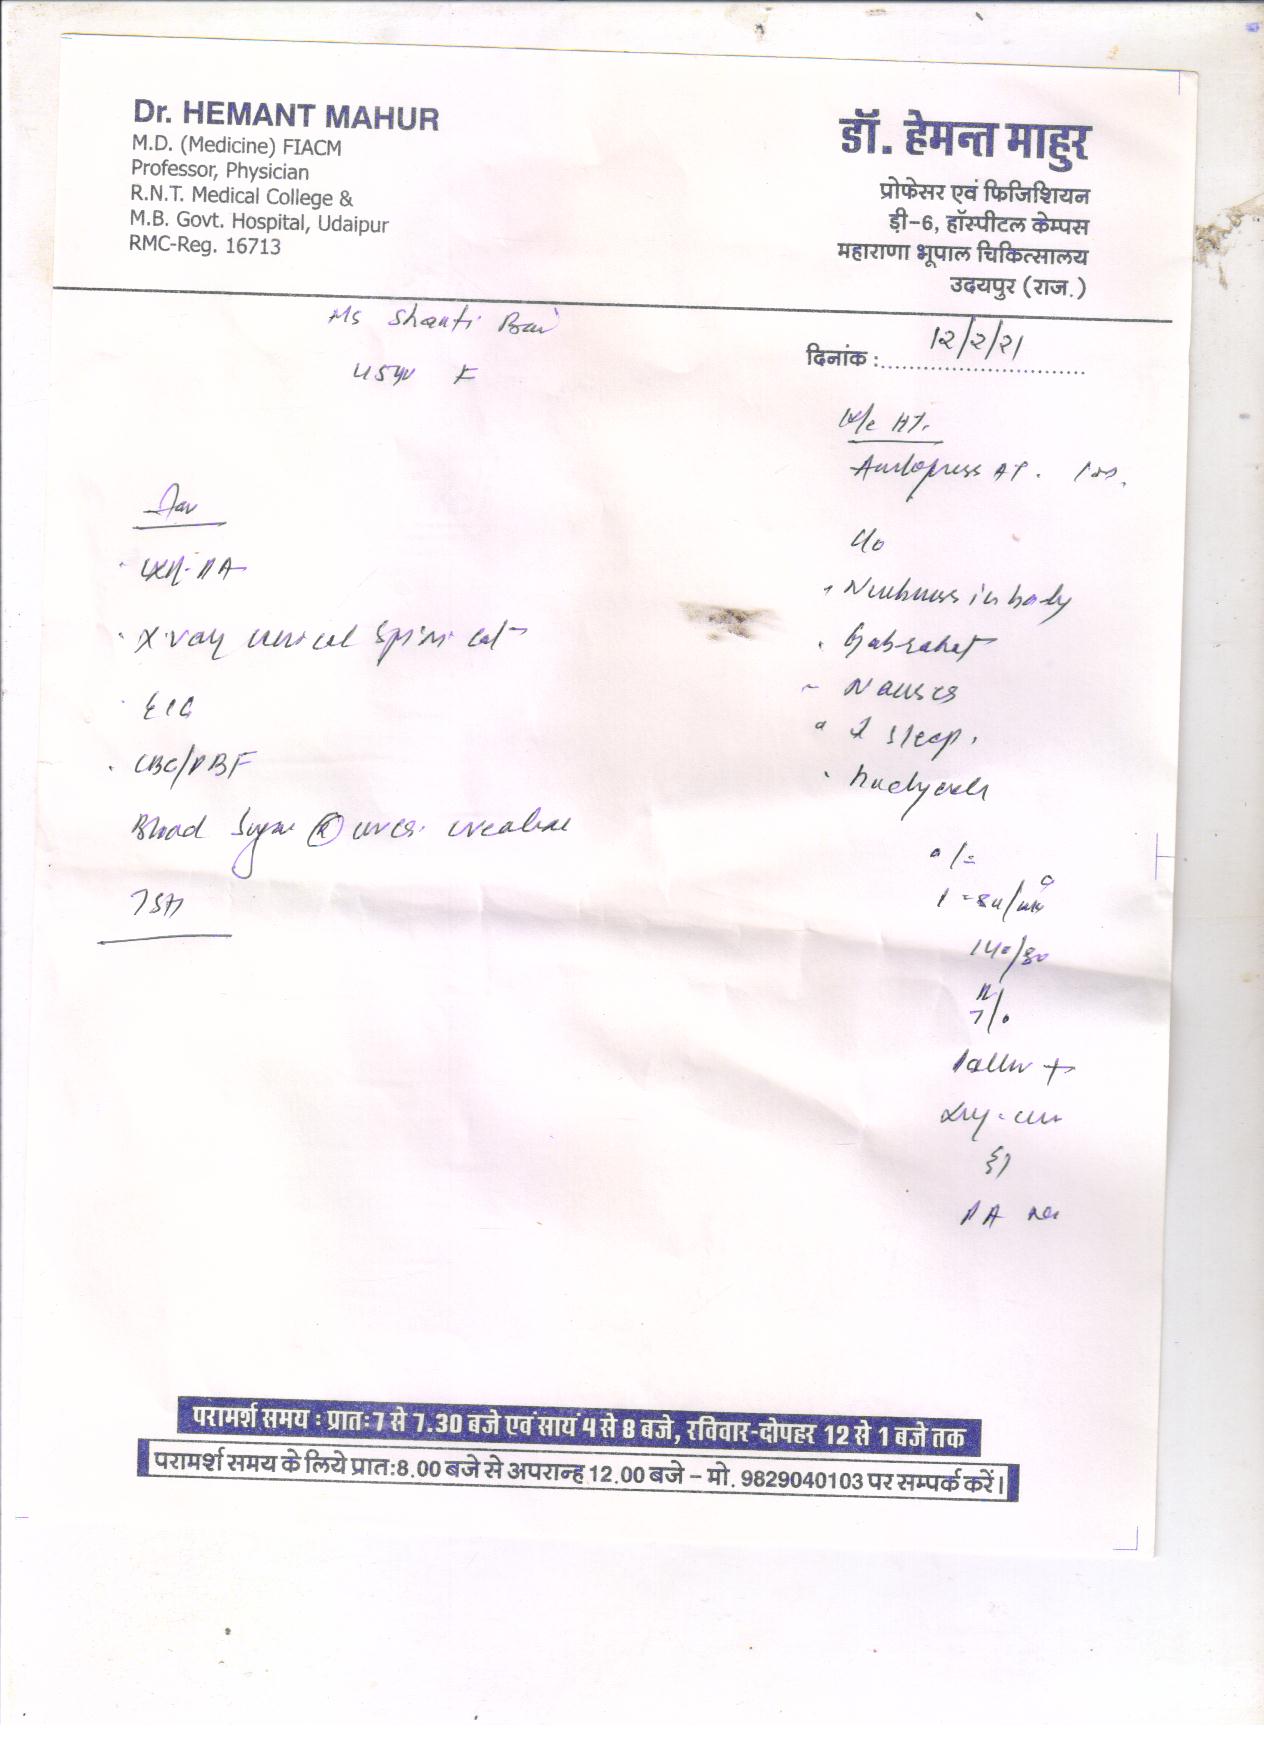 Dr. HEMANT MAHUR
M.D. (Medicine) FIACM
Professor, Physician
R.N.T. Medical College &
M.B. Govt. Hospital, Udaipur
RMC-Reg. 16713
डॉ. हेमन्त माहुर
प्रोफेसर एवं फिजिशियन
ड़ी-6, हॉस्पीटल केम्पस
महाराणा भूपाल चिकित्सालय
उदयपुर (राज.)
Ms Shanti Bai
दिनांक :
१२/२/२१
F
K/c HT.
Amlopress AT.
C/o
Numbness in body
Gabrahat
Nausea
sleep.
Headache
140/80
Pallor +
PA
X-ray cervical spine lat
ECG
CBC/PBF
Blood Sugar (R) urea creatinine
TSH
परामर्श समय : प्रातः 7 से 7.30 बजे एवं सायं 4 से 8 बजे, रविवार-दोपहर 12 से 1 बजे तक
परामर्श समय के लिये प्रातः 8.00 बजे से अपरान्ह 12.00 बजे – मो. 9829040103 पर सम्पर्क करें।